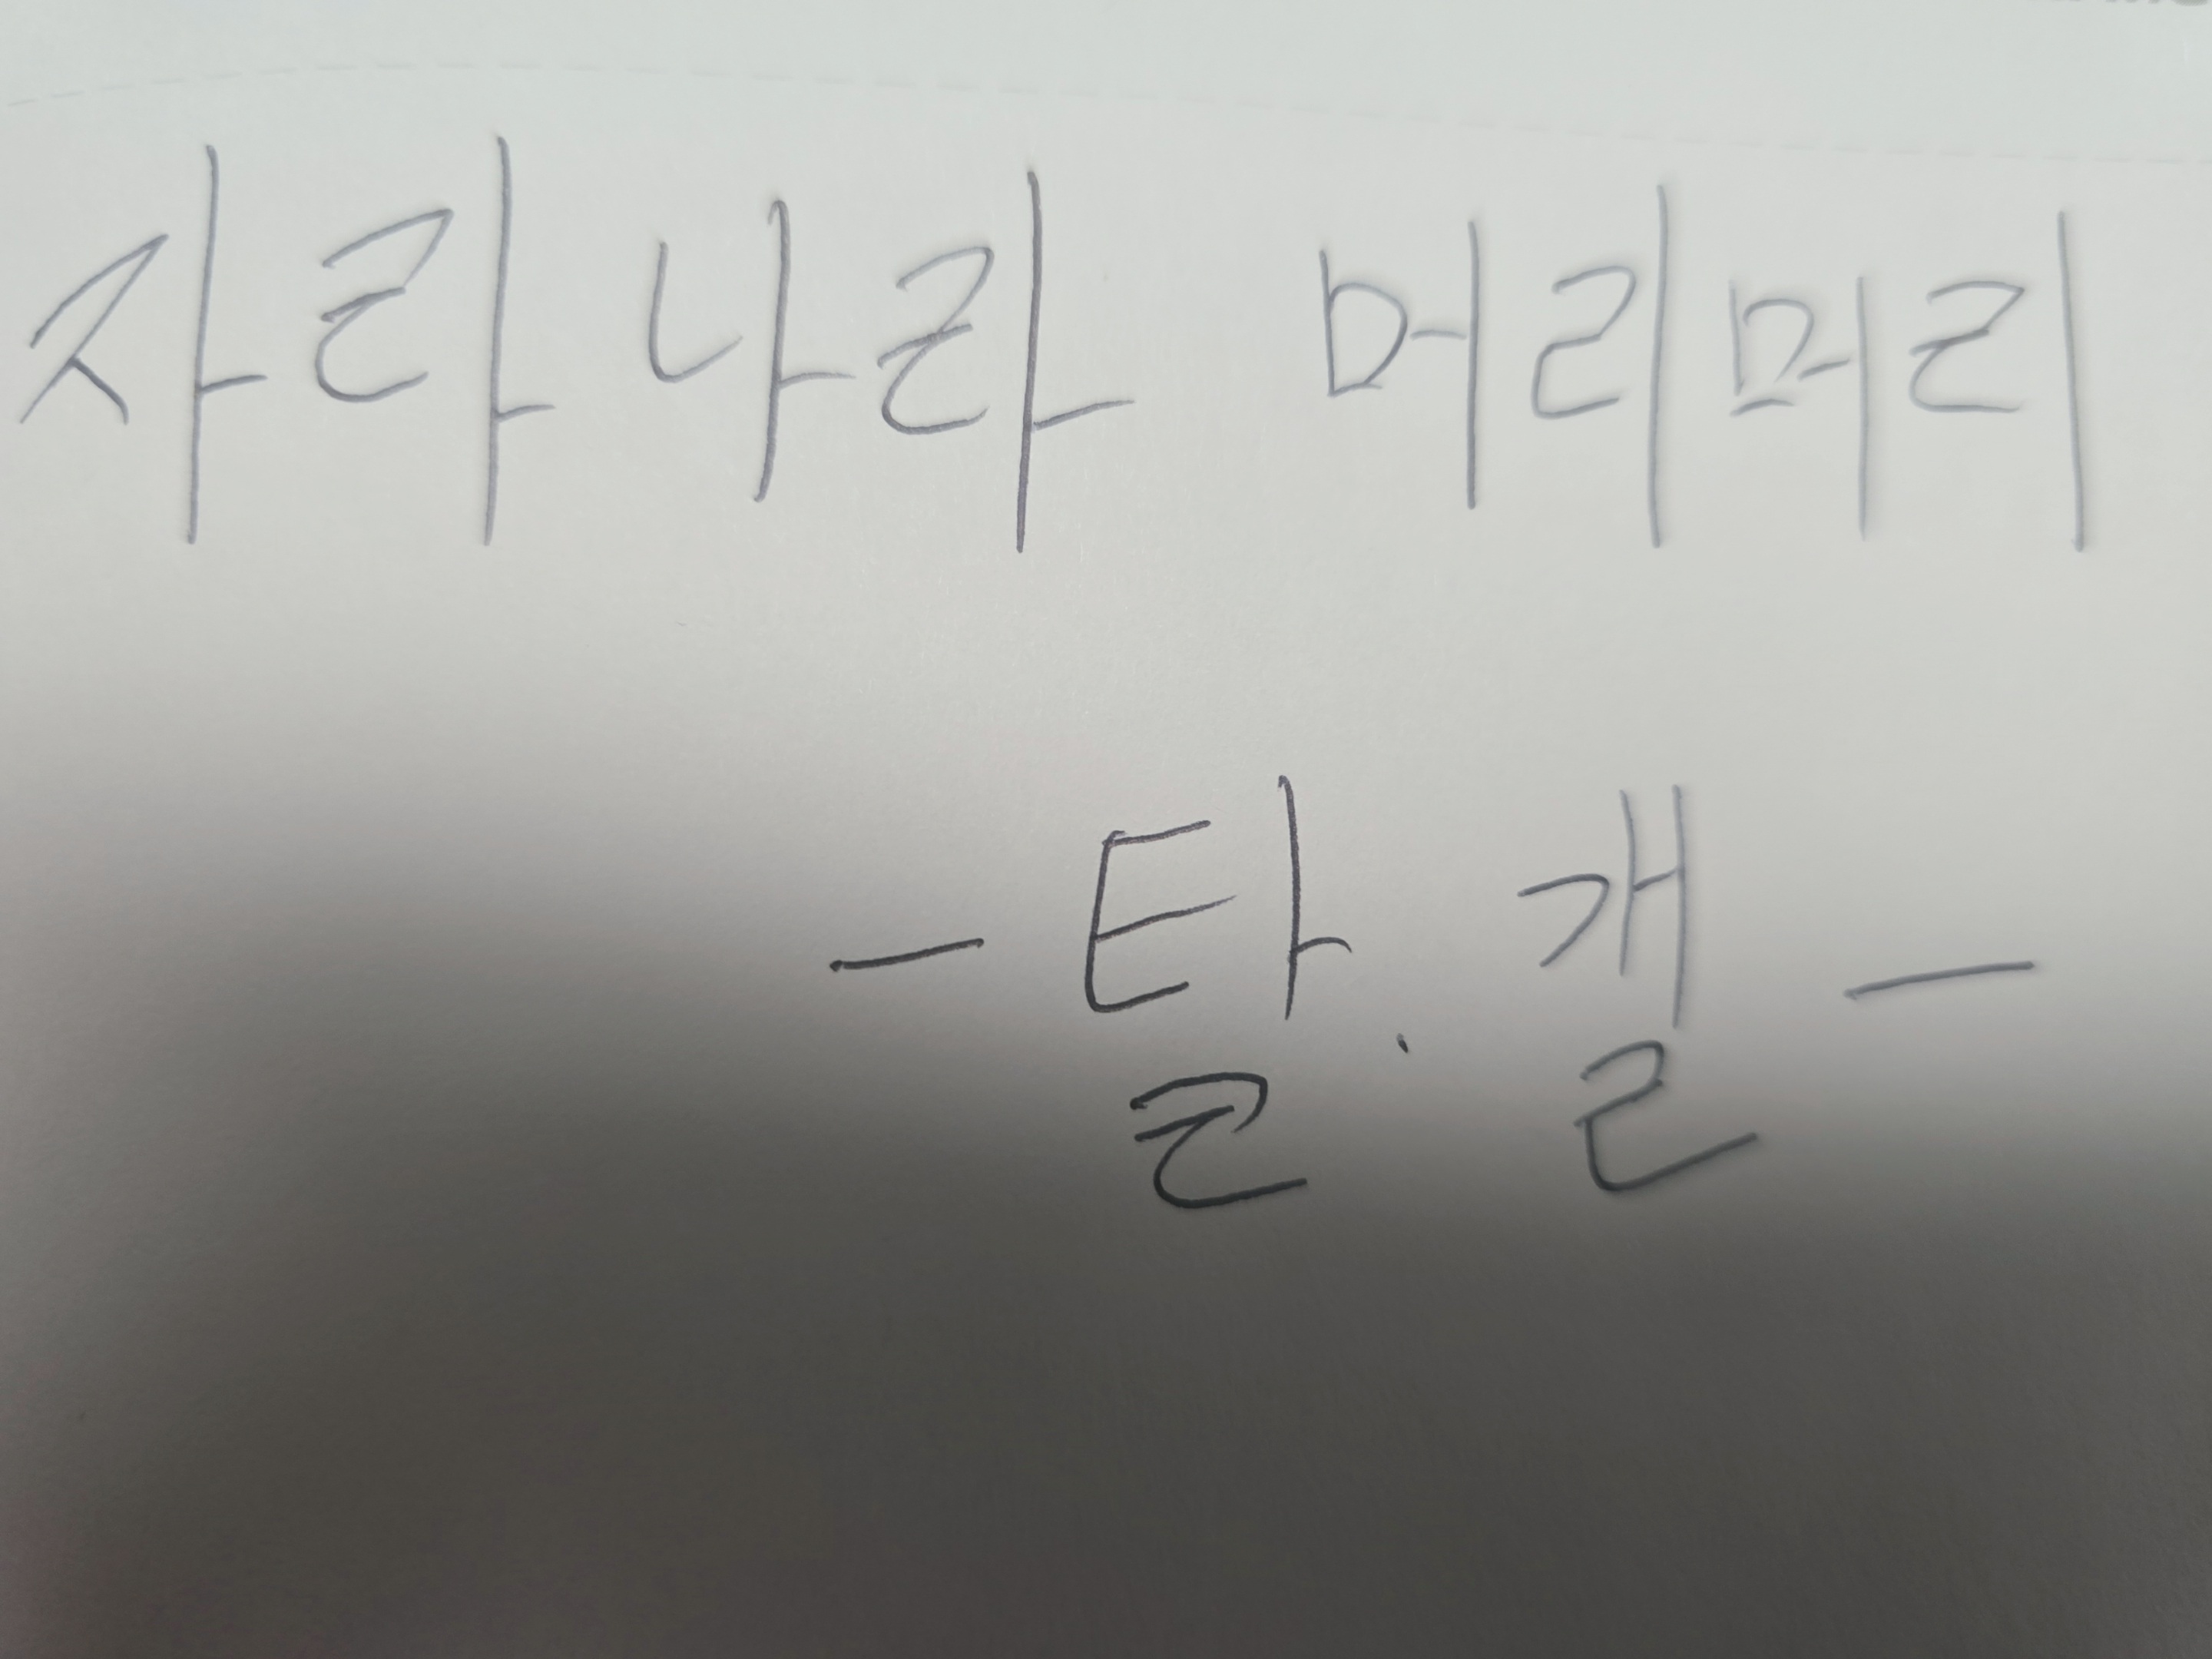 자라나라 머리머리
- 탈. 갤 -